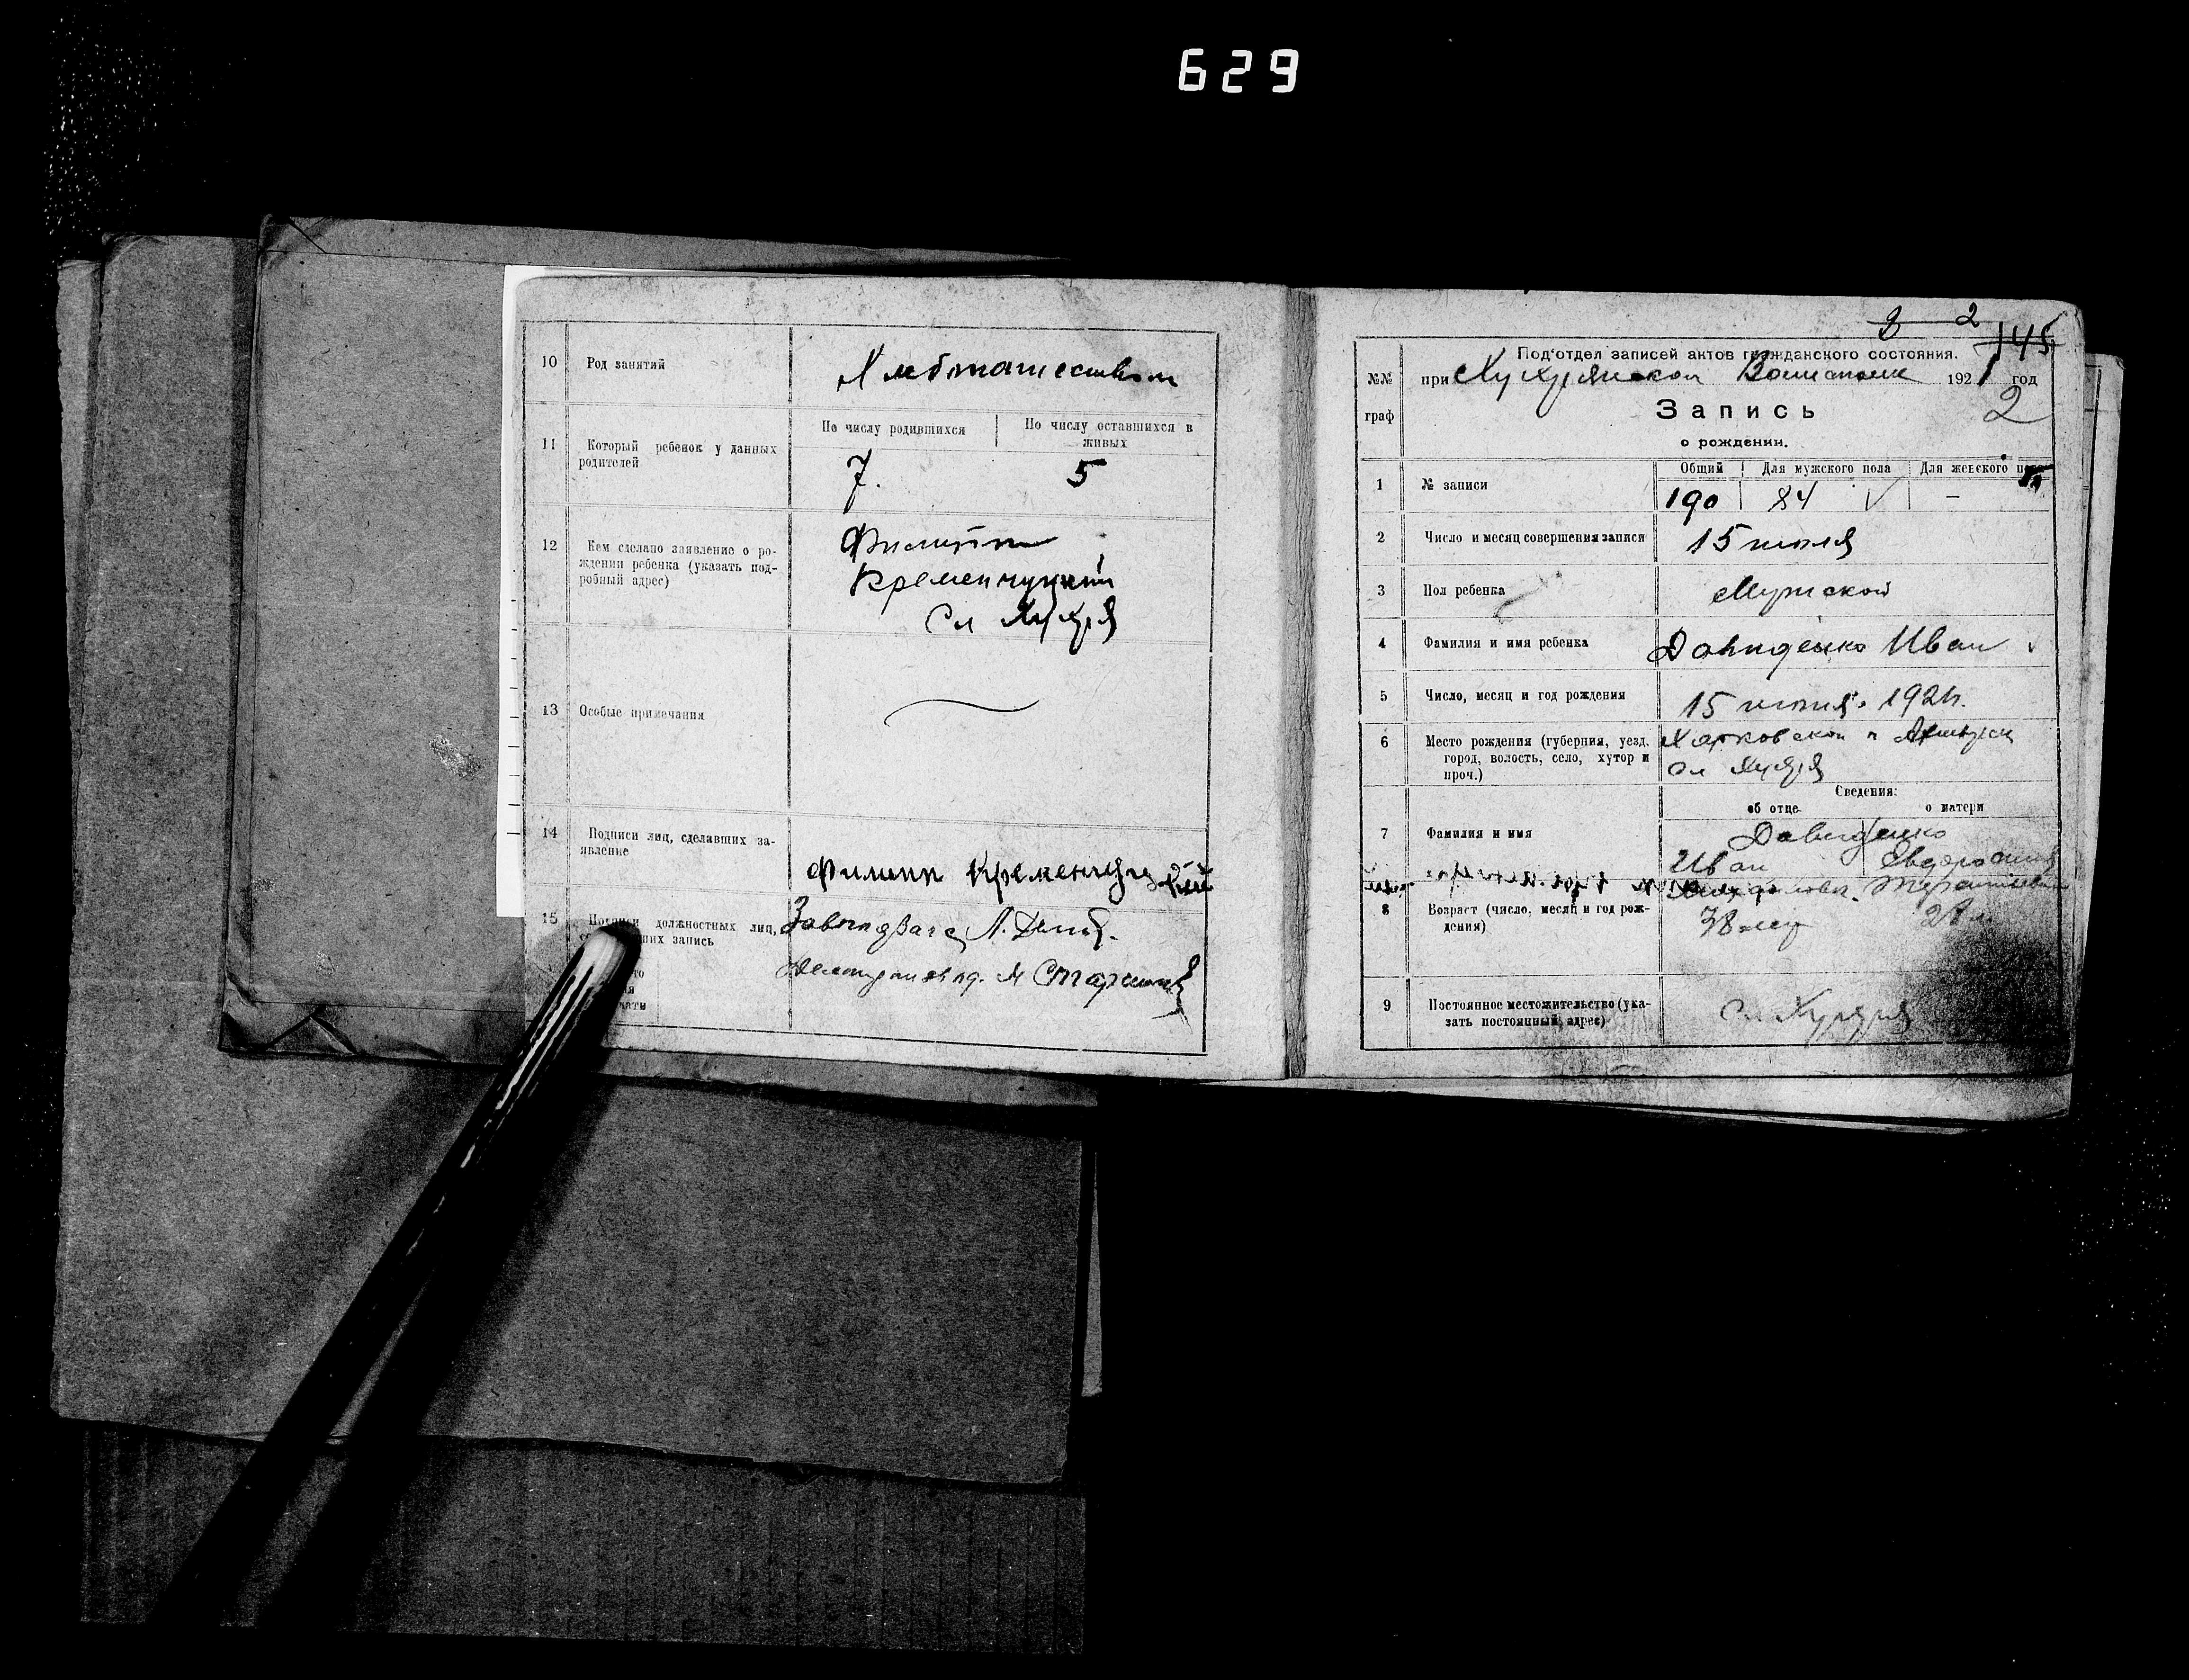 629
10 Род занятий Хлебопашеством
11 Который ребенок у данных родителей
По числу родившихся По числу оставшихся в живых
7. 5
12 Кем сделано заявление о ро-
ждении ребенка (указать под-
робный адрес)
Филипп
Кременчуцкий
Сл Хухря
13 Особые примечания
14 Подписи лиц, сделавших за-
явление
Филипп Кременчуцкий
15 Подписи должностных лиц,
запись
2
145
Под'отдел записей актов гражданского состояния.
№№ граф
при Хухрянском 1921 год
Запись 2
о рождении.
Общий Для мужского пола Для женского пола
1 № записи 190 84 –
2 Число и месяц совершения записи 15 июля
3 Пол ребенка Мужской
4 Фамилия и имя ребенка Давиденко Иван
5 Число, месяц и год рождения 15 1921г.
6 Место рождения (губерния, уезд,
город, волость, село, хутор и
проч.)
Харковской
Сл Хухря
Сведения:
об отце о матери
7 Фамилия и имя Давиденко
Иван
8 Возраст (число, месяц и год рож-
дения)
38 лет
9 Постоянное местожительство (ука-
зать постоянный адрес)
Сл Хухря